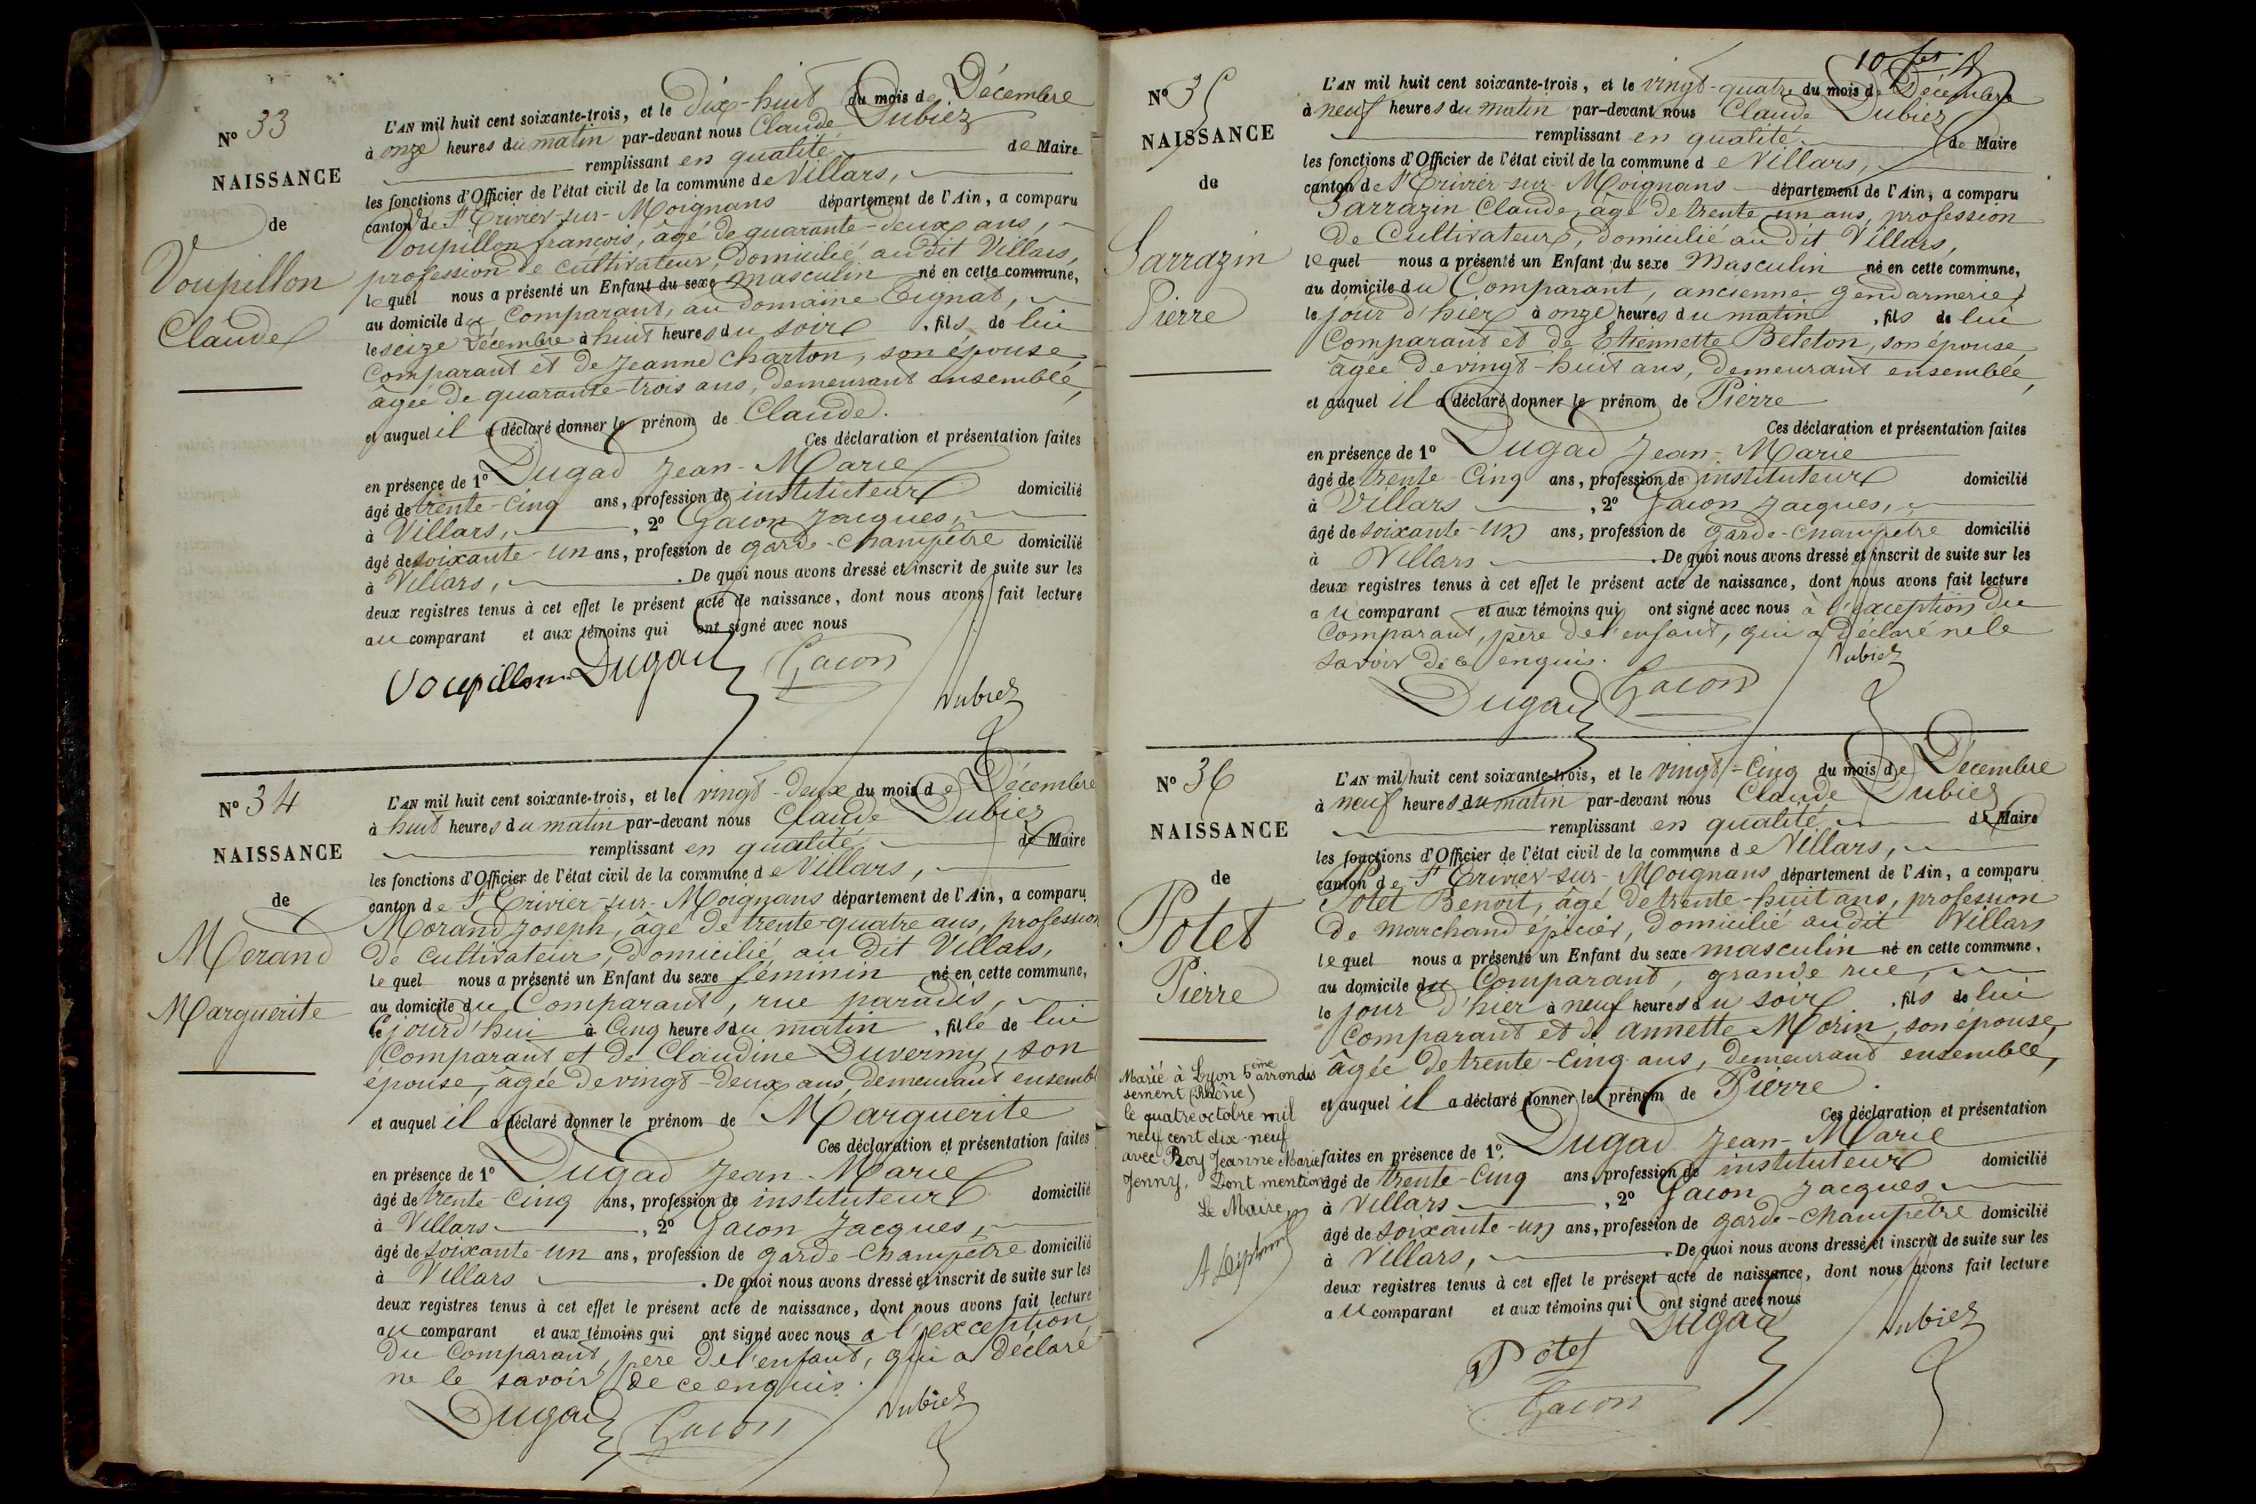 N° 33
NAISSANCE
de
Voupillon
Claude
L'AN mil huit cent soixante-trois, et le dix-huit du mois de Décembre
à onze heures du matin par-devant nous Claude Dubiez
remplissant en qualité de Maire
les fonctions d'Officier de l'état civil de la commune de Villars,
canton de St Trivier-sur-Moignans département de l'Ain, a comparu
Voupillon françois, âgé de quarante-deux ans,
profession de cultivateur, domicilié au dit Villars,
lequel nous a présenté un Enfant du sexe masculin né en cette commune,
au domicile du Comparant, au domaine Tignat,
le seize Décembre à huit heures du soir, fils de lui
Comparant et de Jeanne Charton, son épouse,
âgée de quarante-trois ans, demeurant ensemble,
et auquel il a déclaré donner le prénom de Claude.
Ces déclaration et présentation faites
en présence de 1° Dugad Jean-Marie
âgé de trente-cinq ans, profession de instituteur domicilié
à Villars, , 2° Gacon Jacques,
âgé de soixante-un ans, profession de garde-champêtre domicilié
à Villars, . De quoi nous avons dressé et inscrit de suite sur les
deux registres tenus à cet effet le présent acte de naissance, dont nous avons fait lecture
au comparant et aux témoins qui ont signé avec nous
Voupillon Dugad Gacon
Dubiez
N° 34
NAISSANCE
de
Morand
Marguerite
L'AN mil huit cent soixante-trois, et le vingt-deux du mois de Décembre
à huit heures du matin par-devant nous Claude Dubiez
remplissant en qualité de Maire
les fonctions d'Officier de l'état civil de la commune de Villars,
canton de St Trivier-sur-Moignans département de l'Ain, a comparu
Morand Joseph, âgé de trente-quatre ans, profession
de cultivateur, domicilié au dit Villars,
lequel nous a présenté un Enfant du sexe féminin né en cette commune,
au domicile du Comparant, rue paradis,
le jourd'hui à Cinq heures du matin, fille de lui
Comparant et de Claudine Duvermy, son
épouse, âgée de vingt-deux ans, demeurant ensemb
et auquel il a déclaré donner le prénom de Marguerite
Ces déclaration et présentation faites
en présence de 1° Dugad Jean-Marie
âgé de trente-cinq ans, profession de instituteur domicilié
à Villars , 2° Gacon Jacques,
âgé de soixante-un ans, profession de garde-champêtre domicilié
à Villars . De quoi nous avons dressé et inscrit de suite sur les
deux registres tenus à cet effet le présent acte de naissance, dont nous avons fait lecture
au comparant et aux témoins qui ont signé avec nous à l'exception
du Comparant, père de l'enfant, qui a déclaré
ne le savoir de ce enquis.
Dugad Gacon Dubiez
N° 35
NAISSANCE
de
Sarrazin
Pierre
L'AN mil huit cent soixante-trois, et le vingt-quatre du mois de Décembre
à neuf heures du matin par-devant nous Claude Dubiez
remplissant en qualité de Maire
les fonctions d'Officier de l'état civil de la commune de Villars,
canton de St Trivier-sur-Moignans département de l'Ain, a comparu
Sarrazin Claude, âgé de trente-un ans, profession
de Cultivateur, domicilié au dit Villars,
lequel nous a présenté un Enfant du sexe Masculin né en cette commune,
au domicile du Comparant, ancienne gendarmerie,
le jour d'hier à onze heures du matin, fils de lui
Comparant et de Etiennette Beleton, son épouse,
âgée de vingt-huit ans, demeurant ensemble,
et auquel il a déclaré donner le prénom de Pierre
Ces déclaration et présentation faites
en présence de 1° Dugad Jean-Marie
âgé de trente-cinq ans, profession de instituteur domicilié
à Villars , 2° Gacon Jacques,
âgé de soixante-un ans, profession de garde-champêtre domicilié
à Villars . De quoi nous avons dressé et inscrit de suite sur les
deux registres tenus à cet effet le présent acte de naissance, dont nous avons fait lecture
au comparant et aux témoins qui ont signé avec nous à l'exception du
Comparant, père de l'enfant, qui a déclaré ne le
savoir de ce enquis.
Dubiez
Dugad Gacon
N° 36
NAISSANCE
de
Potet
Pierre
L'AN mil huit cent soixante-trois, et le vingt-cinq du mois de Décembre
à neuf heures du matin par-devant nous Claude Dubiez
remplissant en qualité de Maire
les fonctions d'Officier de l'état civil de la commune de Villars,
canton de St Trivier-sur-Moignans département de l'Ain, a comparu
Potet Benoit, âgé de trente-huit ans, profession
de marchand épicier, domicilié au dit Villars
lequel nous a présenté un Enfant du sexe masculin né en cette commune,
au domicile du Comparant, grande rue,
le jour d'hier à neuf heures du soir, fils de lui
Comparant et de annette Morin, son épouse,
âgée de trente-cinq ans, demeurant ensemble,
et auquel il a déclaré donner le prénom de Pierre.
Ces déclaration et présentation
faites en présence de 1° Dugad Jean-Marie
âgé de trente-cinq ans, profession de instituteur domicilié
à Villars , 2° Gacon Jacques
âgé de soixante-un ans, profession de garde-champêtre domicilié
à Villars, . De quoi nous avons dressé et inscrit de suite sur les
deux registres tenus à cet effet le présent acte de naissance, dont nous avons fait lecture
au comparant et aux témoins qui ont signé avec nous
Dugad Dubiez
Potet
Gacon
Marié à Lyon 5ème arrondis
sement (Rhône)
le quatre octobre mil
neuf cent dix-neuf
avec Roy Jeanne Marie
Jenny, Dont mention
Le Maire,